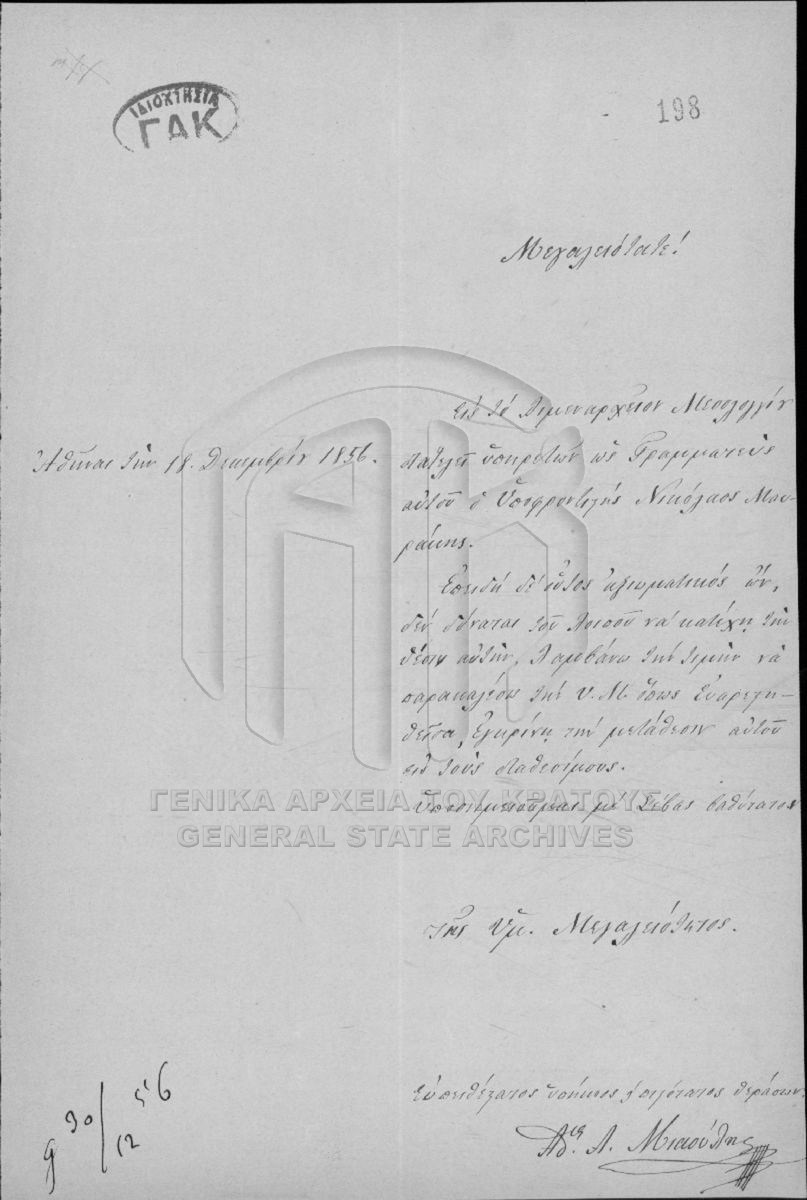 ΙΔΙΟΚΤΗΣΙΑ
ΓΑΚ
198
Μεγαλειότατε!
Ἀθῆναι τὴν 18. Δεκεμβρίου 1856.
Εἰς τὸ Λιμεναρχεῖον Μεσολογγίου
διατελεῖ ὑπηρετῶν ὡς Γραμματεὺς
αὐτοῦ ὁ Ὑποφροντιστὴς Νικόλαος Μαυ-
ράκης.
Ἐπειδὴ δὲ οὗτος ἀξιωματικὸς ὤν,
δὲν δύναται τοῦ λοιποῦ νὰ κατέχῃ τὴν
θέσιν αὐτήν, λαμβάνω τὴν τιμὴν νὰ
παρακαλέσω τὴν Υ. Μ. ὅπως εὐαρεστη-
θεῖσα, ἐγκρίνῃ τὴν μετάθεσιν αὐτοῦ
εἰς τοὺς διαθεσίμους.
Ὑποσημειοῦμαι μὲ σέβας βαθύτατον
τῆς Ὑμ. Μεγαλειότητος.
Εὐπειθέστατος ὑπήκοος πιστότατος θεράπων
Α. Μιαούλης
30/12 56
ΓΕΝΙΚΑ ΑΡΧΕΙΑ ΤΟΥ ΚΡΑΤΟΥΣ
GENERAL STATE ARCHIVES